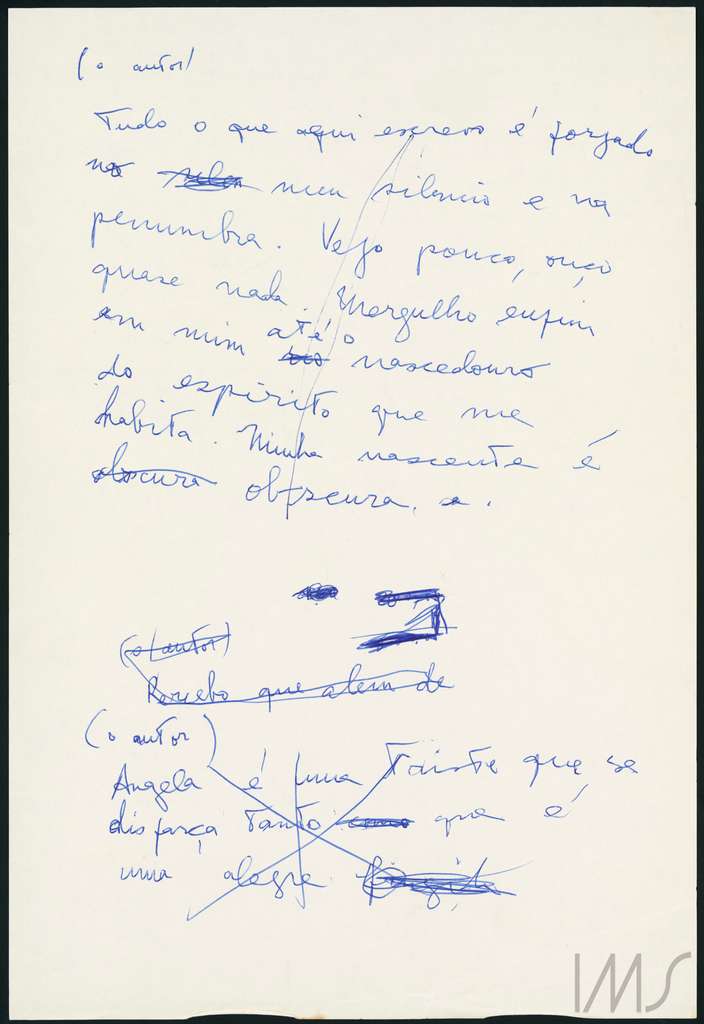 (o autor)
Tudo o que aqui escrevo é forjado
no meu silencio e na
penumbra. Vejo pouco, ouço
quase nada. Mergulho enfim
em mim até o nascedouro
do espírito que me
habita. Minha nascente é
obscura obscura. e.
(o autor)
Percebo que alem de
(o autor)
Angela é uma triste que se
disfarça tanto que é
uma alegre
IMS